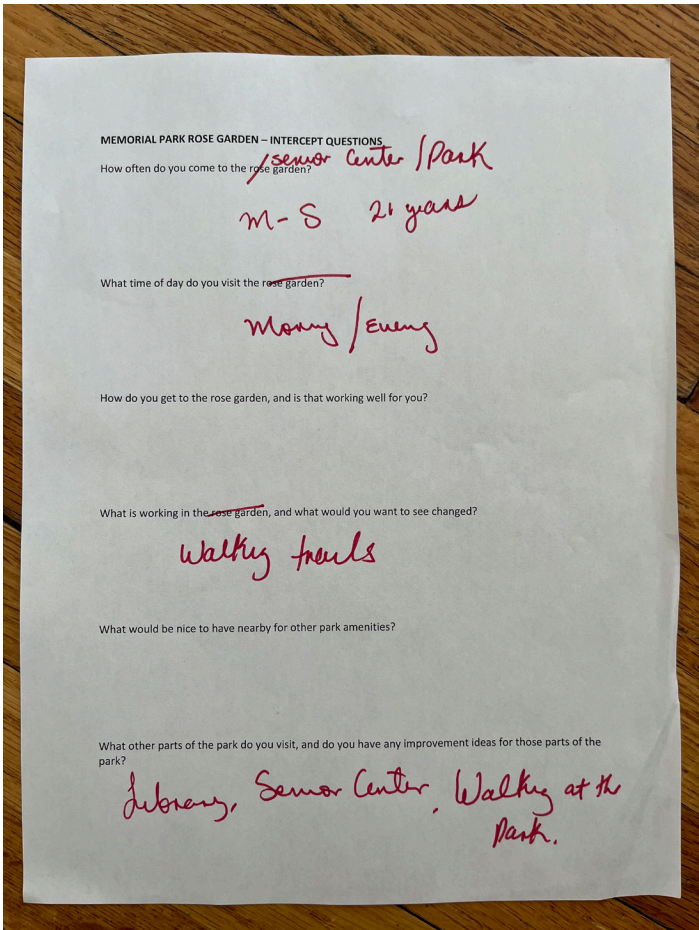 MEMORIAL PARK ROSE GARDEN – INTERCEPT QUESTIONS
/senior Center / Park
How often do you come to the rose garden?
M - S 21 years
What time of day do you visit the rose garden?
Morning / Evening
How do you get to the rose garden, and is that working well for you?
What is working in the rose garden, and what would you want to see changed?
Walking trails
What would be nice to have nearby for other park amenities?
What other parts of the park do you visit, and do you have any improvement ideas for those parts of the
park?
Library, Senior Center, Walking at the
Park.